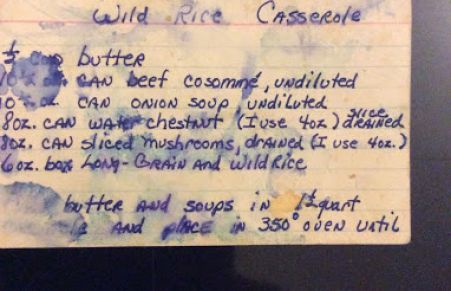 Wild Rice Casserole
½ cup butter
10½ oz. can beef cosommé, undiluted
10½ oz. can onion soup, undiluted
8oz. can water chestnut (I use 4oz.) slice drained
8oz. can sliced mushrooms, drained (I use 4oz.)
6oz. box Long-Grain and Wild Rice
butter and soups in 1½ quart
and place in 350° oven until